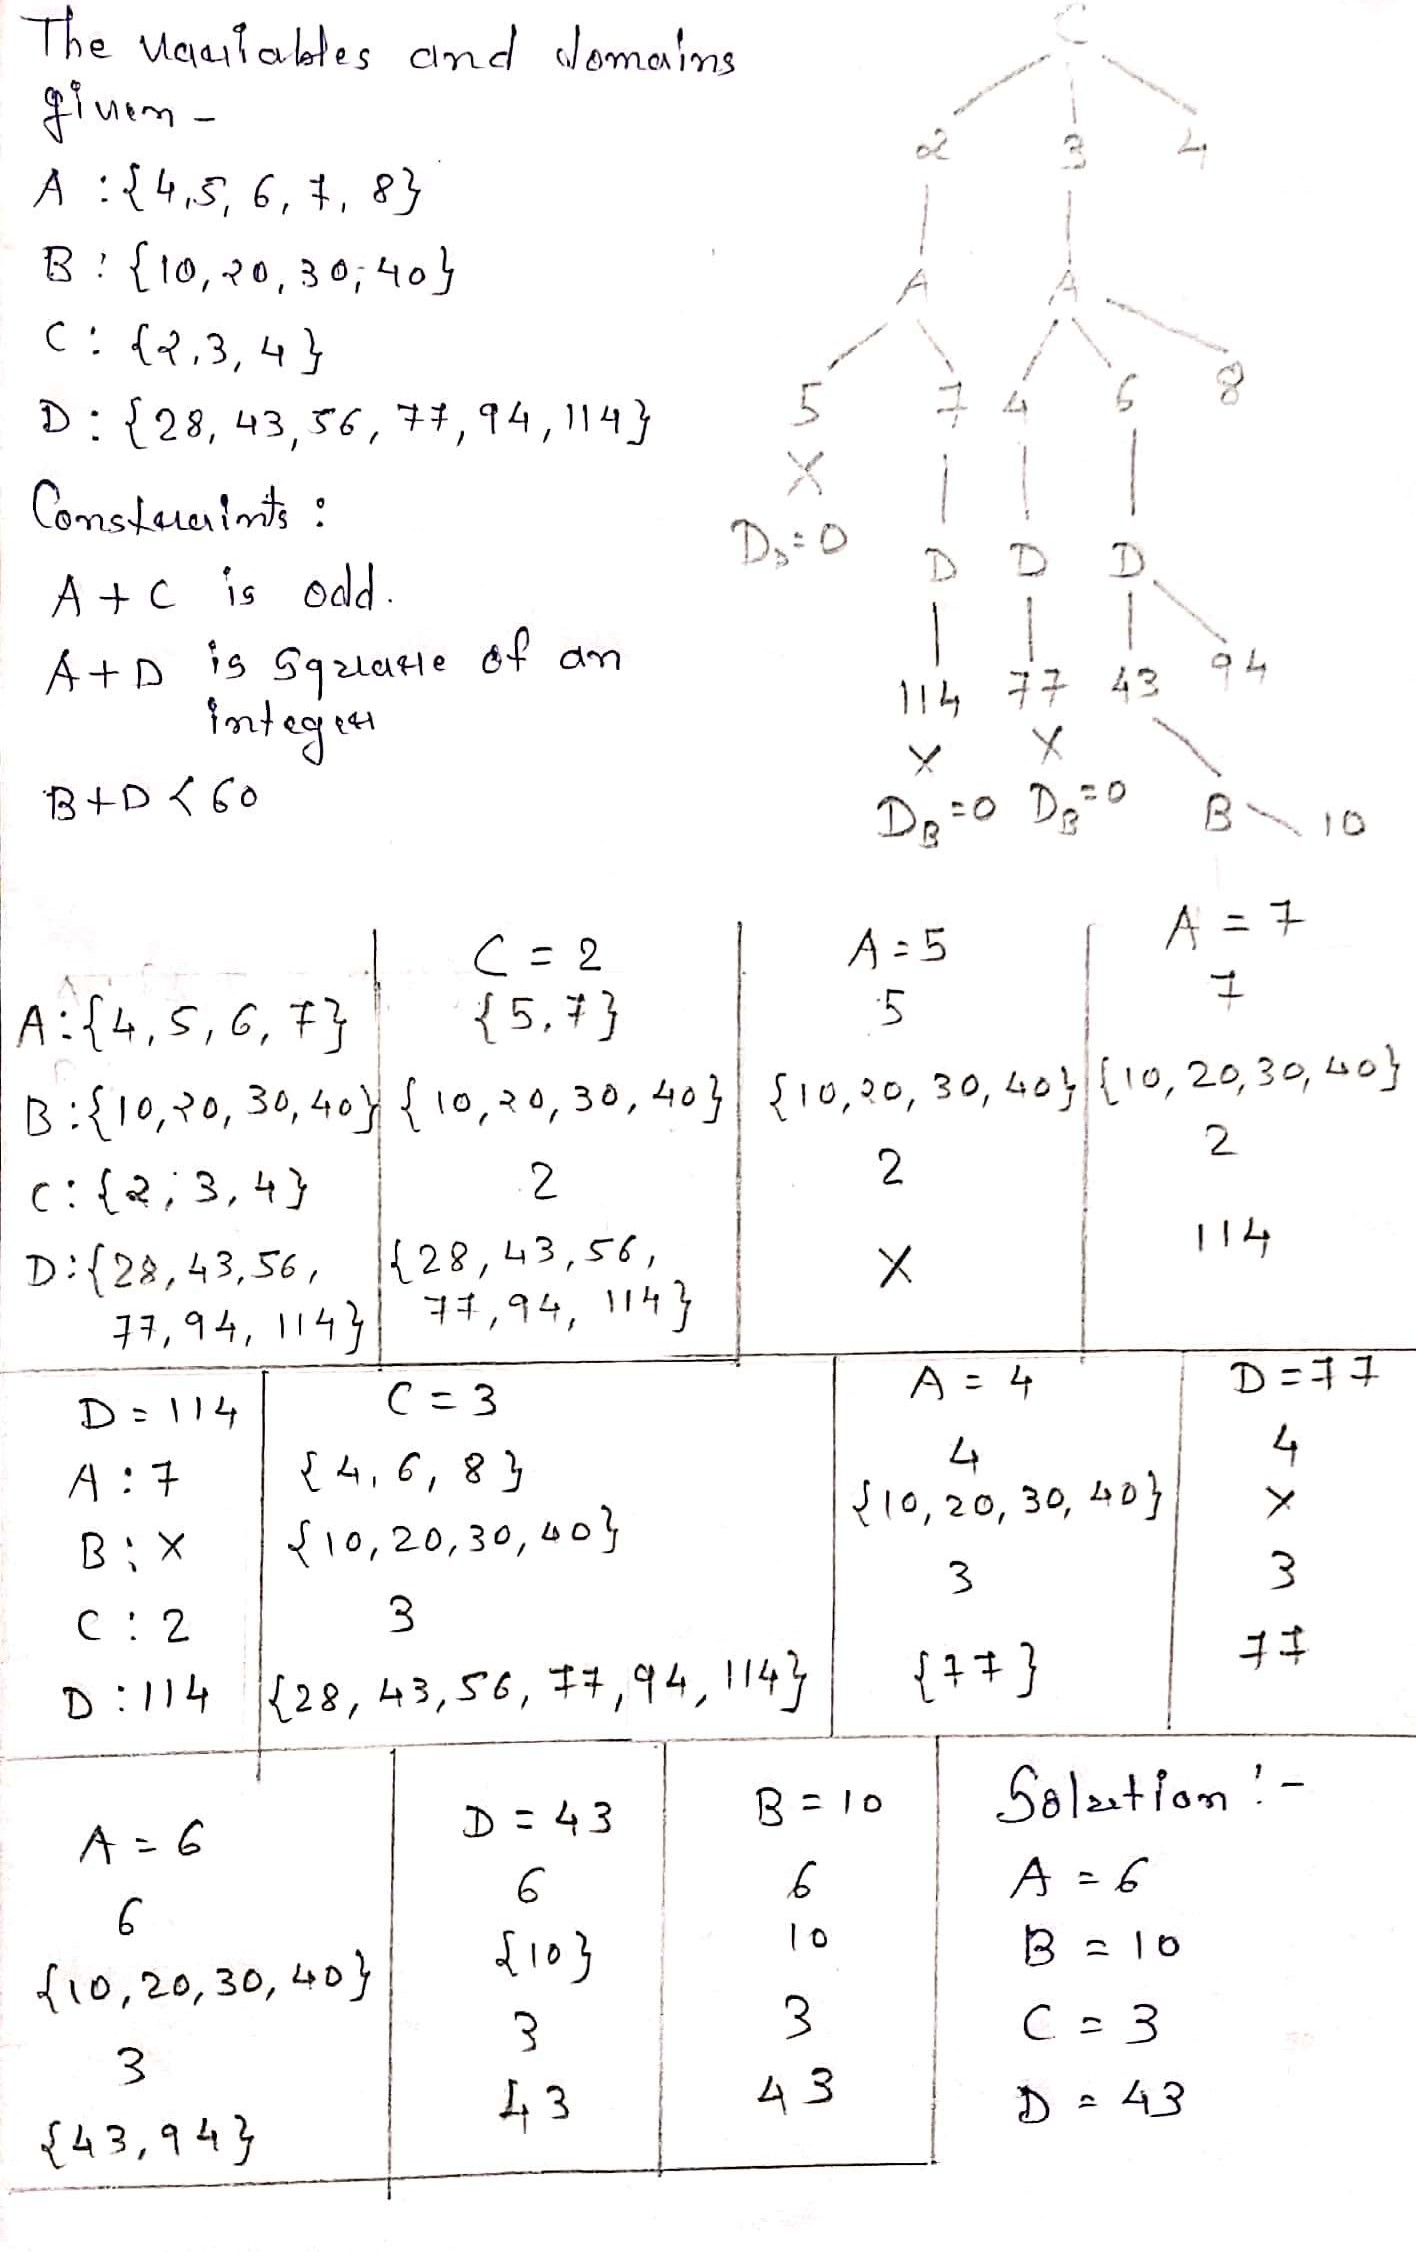 The variables and domains
given -
A : {4, 5, 6, 7, 8}
B : {10, 20, 30, 40}
C : {2, 3, 4}
D : {28, 43, 56, 77, 94, 114}
Constraints :
A + C is odd.
A + D is square of an
integer
B + D < 60
C
2 3 4
A A
5 7 4 6 8
X
D_D = 0
D D D
114 77 43 94
X X
D_B = 0 D_B = 0
B 10
C = 2 A = 5 A = 7
A : {4, 5, 6, 7} {5, 7} 5 7
B : {10, 20, 30, 40} {10, 20, 30, 40} {10, 20, 30, 40} {10, 20, 30, 40}
C : {2, 3, 4} 2 2 2
D : {28, 43, 56, {28, 43, 56, X 114
77, 94, 114} 77, 94, 114}
D = 114 C = 3 A = 4 D = 77
A : 7 {4, 6, 8} 4 4
B : X {10, 20, 30, 40} {10, 20, 30, 40} X
C : 2 3 3 3
D : 114 {28, 43, 56, 77, 94, 114} {77} 77
A = 6 D = 43 B = 10 Solution :-
6 6 6 A = 6
{10, 20, 30, 40} {10} 10 B = 10
3 3 3 C = 3
{43, 94} 43 43 D = 43